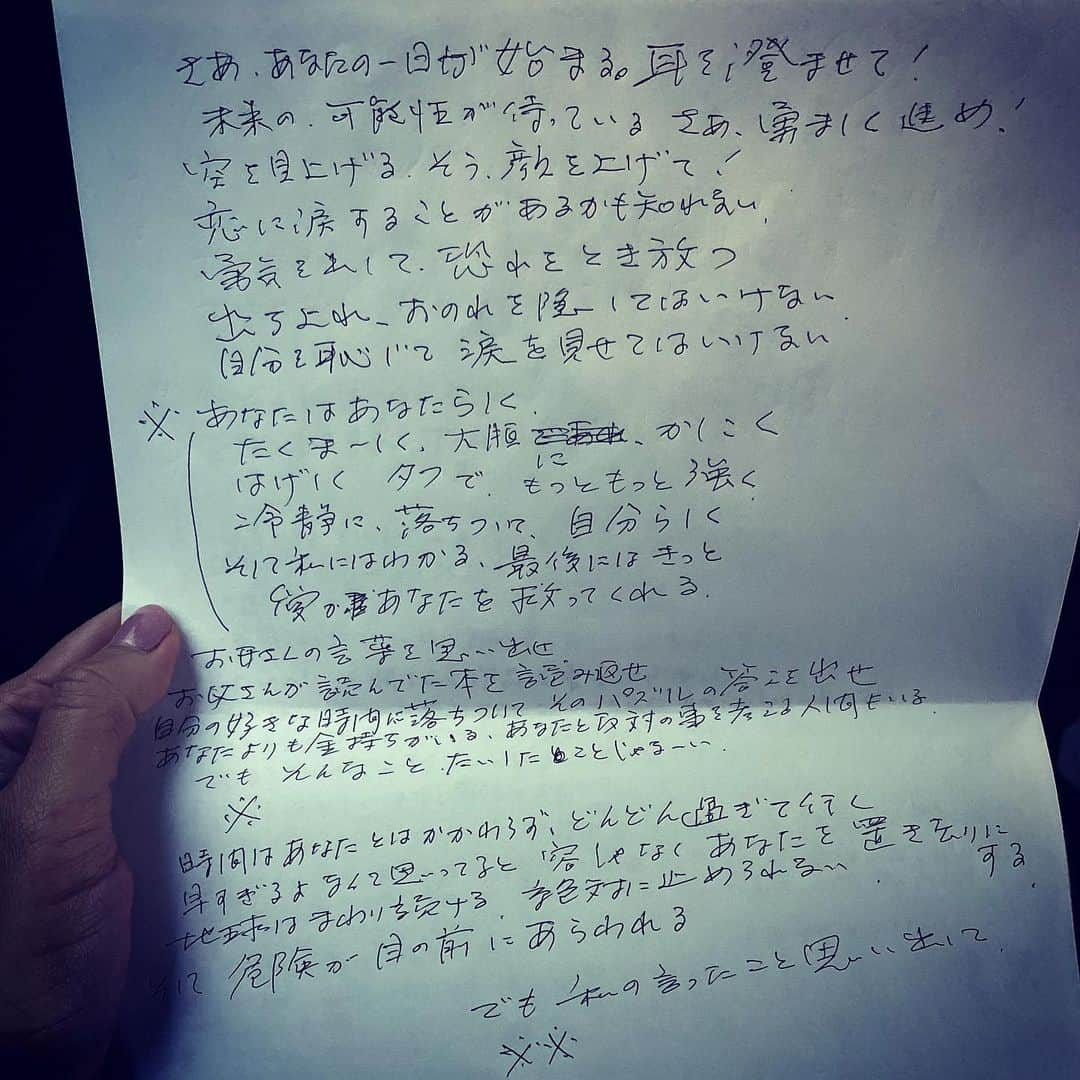 さあ、あなたの一日が始まる。耳を澄ませて!
未来の、可能性が待っている さあ、勇ましく進め!
空を見上げる、そう、顔を上げて!
恋に涙することがあるかも知れない、
勇気を出して、恐れをとき放つ
出ろよれ、おのれを隠してはいけない、
自分を恥じて涙を見せてはいけない
※ あなたはあなたらしく、
たくま〜しく、大胆に、かしこく
はげしく タフで、もっともっと強く、
冷静に、落ちついて、自分らしく
そして私にはわかる、最後にはきっと
愛があなたを救ってくれる、
お母さんの言葉を思い出せ
お父さんが読んでた本を読み返せ
自分の好きな時間に落ちついて そのパズルの答こを出せ
あなたよりも金持ちがいる、あなたと反対の事を考こる人間もいる、
でも そんなこと、たいしたことじゃな〜い、
※
時間はあなたとはかかわらず、どんどん過ぎて行く
早すぎるよなんて思ってると 容しゃなく あなたを置き去りにする、
地球はまわり続ける、絶対に止められない、
そして 危険が目の前にあらわれる
でも 私の言ったこと思い出して、
※※